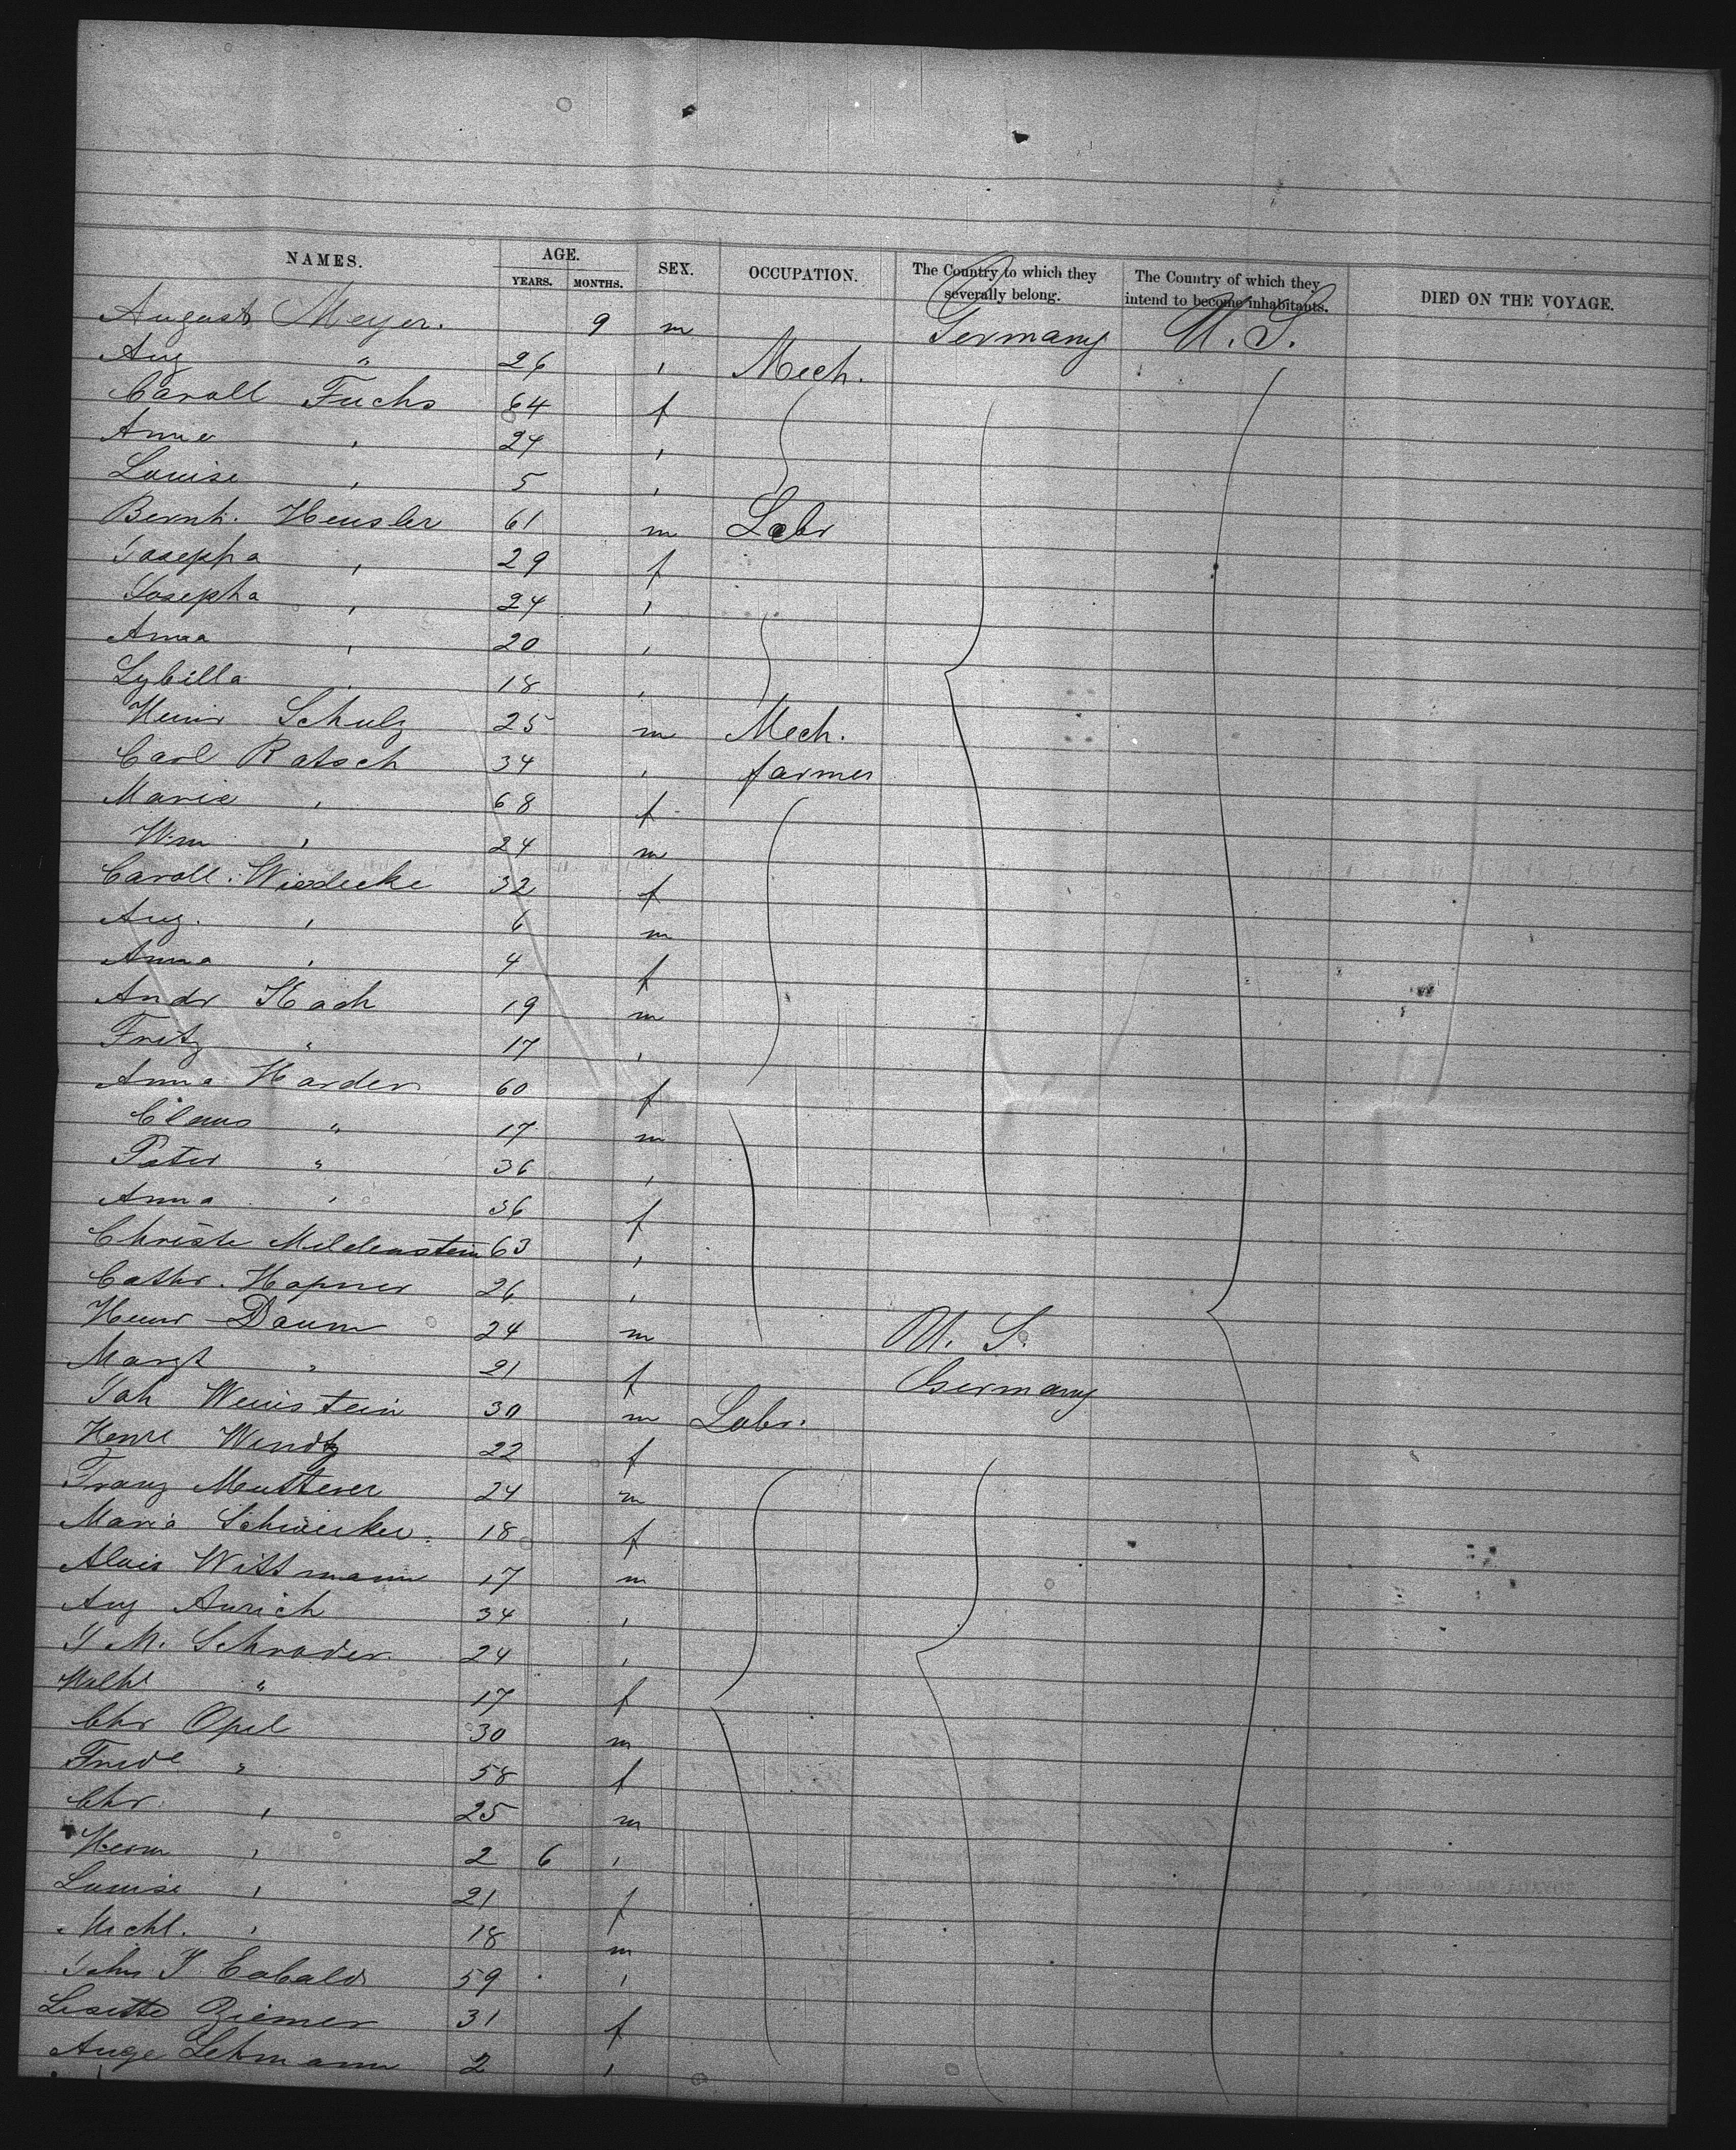 NAMES. AGE. YEARS. MONTHS. SEX. OCCUPATION. The Country to which they severally belong. The Country of which they intend to become inhabitants. DIED ON THE VOYAGE.
August Meyer. 9 m Germany U. S.
Aug " 26 , Mech.
Caroll Fuchs 64 f
Anna , 24 ,
Louise , 5 ,
Bernh. Heusler 61 m Labr
Josepha , 29 f
Josepha , 24 ,
Anna , 20 ,
Sybilla , 18 ,
Heinr Schulz 25 m Mech.
Carl Ratsch 34 , farmer
Marie , 68 f
Wm , 24 m
Caroll. Wiedecke 32 f
Aug. , 6 m
Anna , 4 f
Andr Hach 19 m
Fritz " 17 ,
Anna Harder 60 f
Claus " 17 m
Peter " 36 ,
Anna , 36 f
Christe Mildenstein 63 ,
Cathr. Hapner 26 ,
Heinr Daum 24 m U. S.
Margt " 21 f Germany
Joh Weinstein 30 m Labr.
Henre Wendtz 22 f
Franz Mutterer 24 m
Maria Schwicker 18 f
Alois Wittmann 17 m
Aug Aurich 34 ,
J M. Schrader 24 ,
" 17 f
Chr Opel 30 m
Fride " 58 f
Chr. , 25 m
Herm , 2 6 ,
Louise , 21 f
Michl. , 18 m
Johs J Cobald 59 ,
Lisette Ziemer 31 f
Auge Lehmann 2 ,